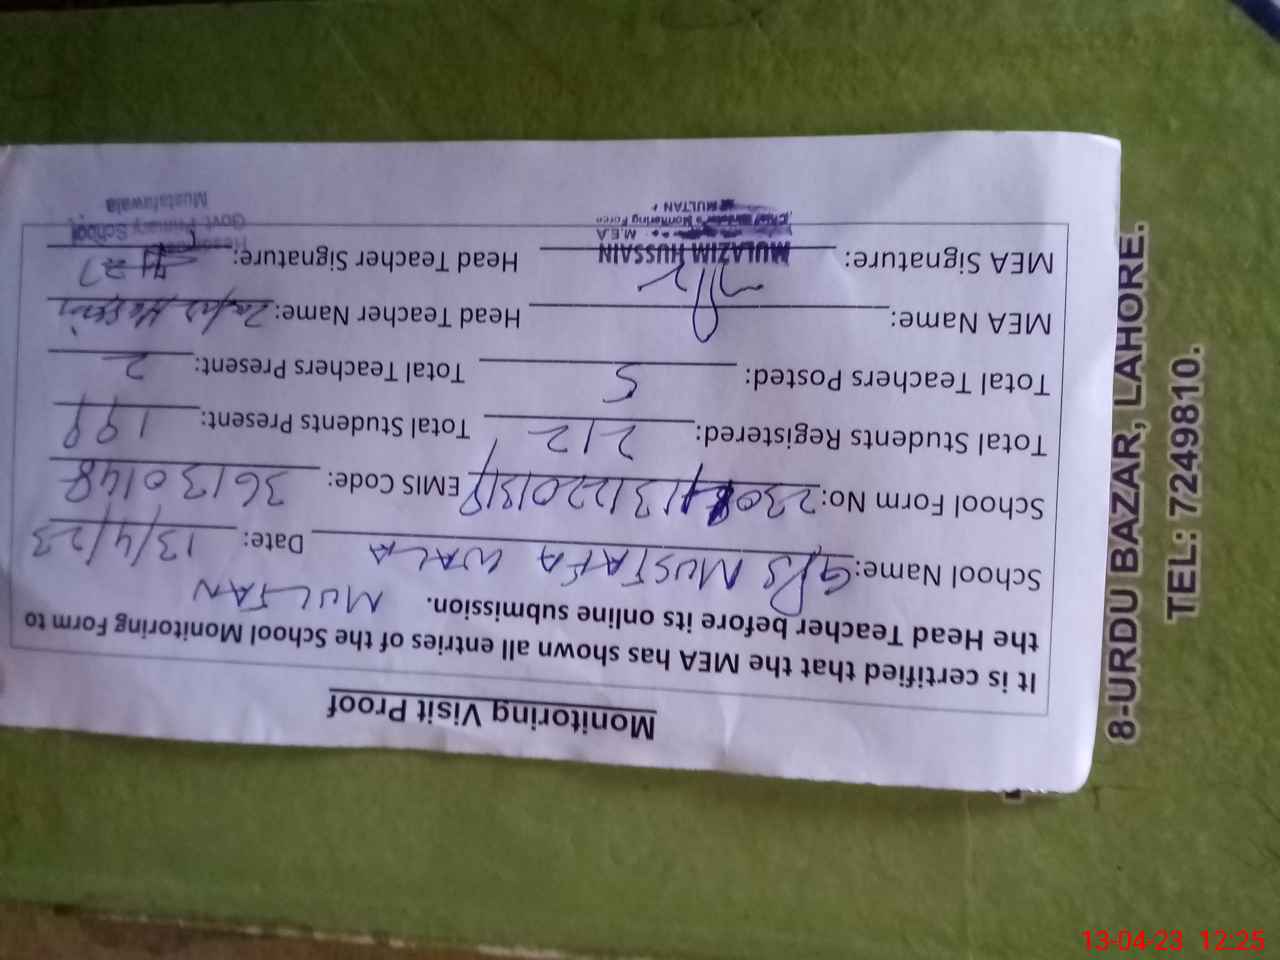 Monitoring Visit Proof
It is certified that the MEA has shown all entries of the School Monitoring Form to
the Head Teacher before its online submission. MULTAN
School Name: G/PS MUSTAFA WALA Date: 13/4/23
School Form No: EMIS Code: 36130148
Total Students Registered: 212 Total Students Present: 199
Total Teachers Posted: 5 Total Teachers Present: 2
MEA Name: Head Teacher Name:
MEA Signature: Head Teacher Signature:
MULAZIM HUSSAIN
M.E.A
Monitoring Force
MULTAN
Govt Primary School
Mustafawala
8-URDU BAZAR, LAHORE.
TEL: 7249810.
13-04-23 12:25